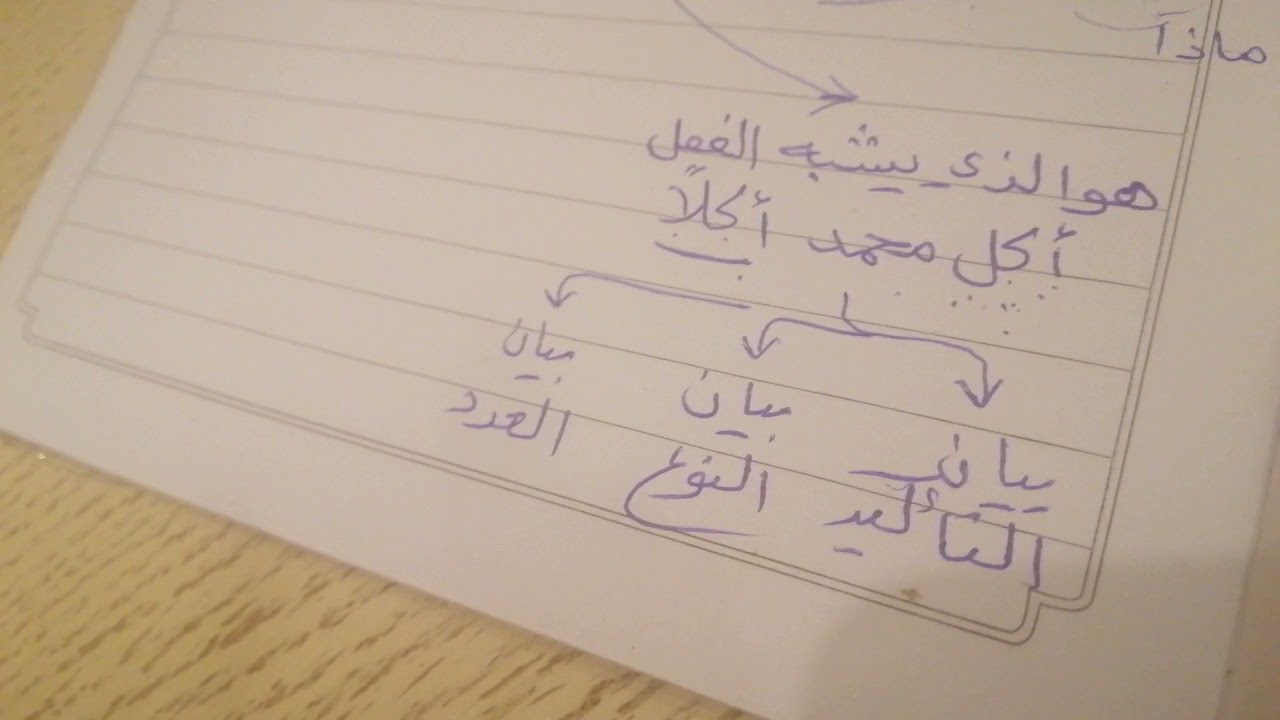 ماذا
هو الذي يشبه الفعل
أكل محمد أكلاً
بيان التأكيد
بيان النوع
بيان العدد